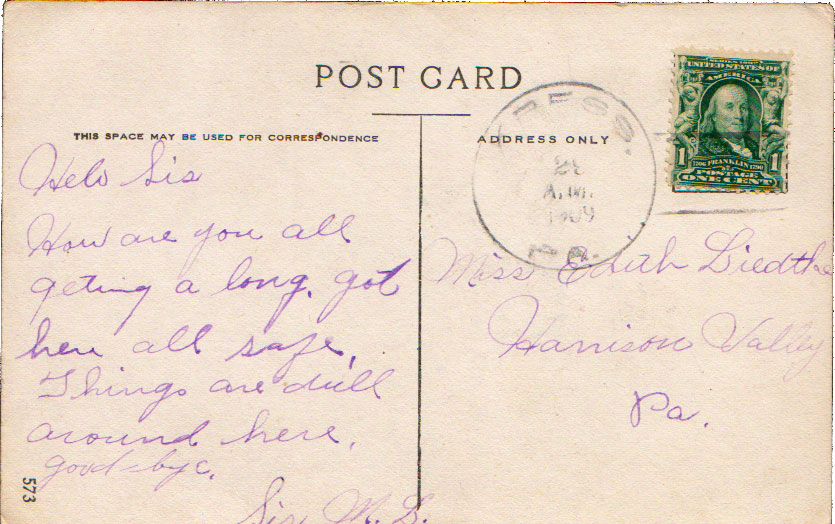 POST CARD
THIS SPACE MAY BE USED FOR CORRESPONDENCE
Helo Sis
How are you all
geting a long. got
here all safe.
Things are dull
around here.
good-bye.
Sis M. L.
573
ADDRESS ONLY
A.M.
1909
PA.
SERIES 1902
UNITED STATES OF
AMERICA
1 1
1706 FRANKLIN 1790
POSTAGE
ONE CENT
Miss Edith Liedtke
Harrison Valley
Pa.